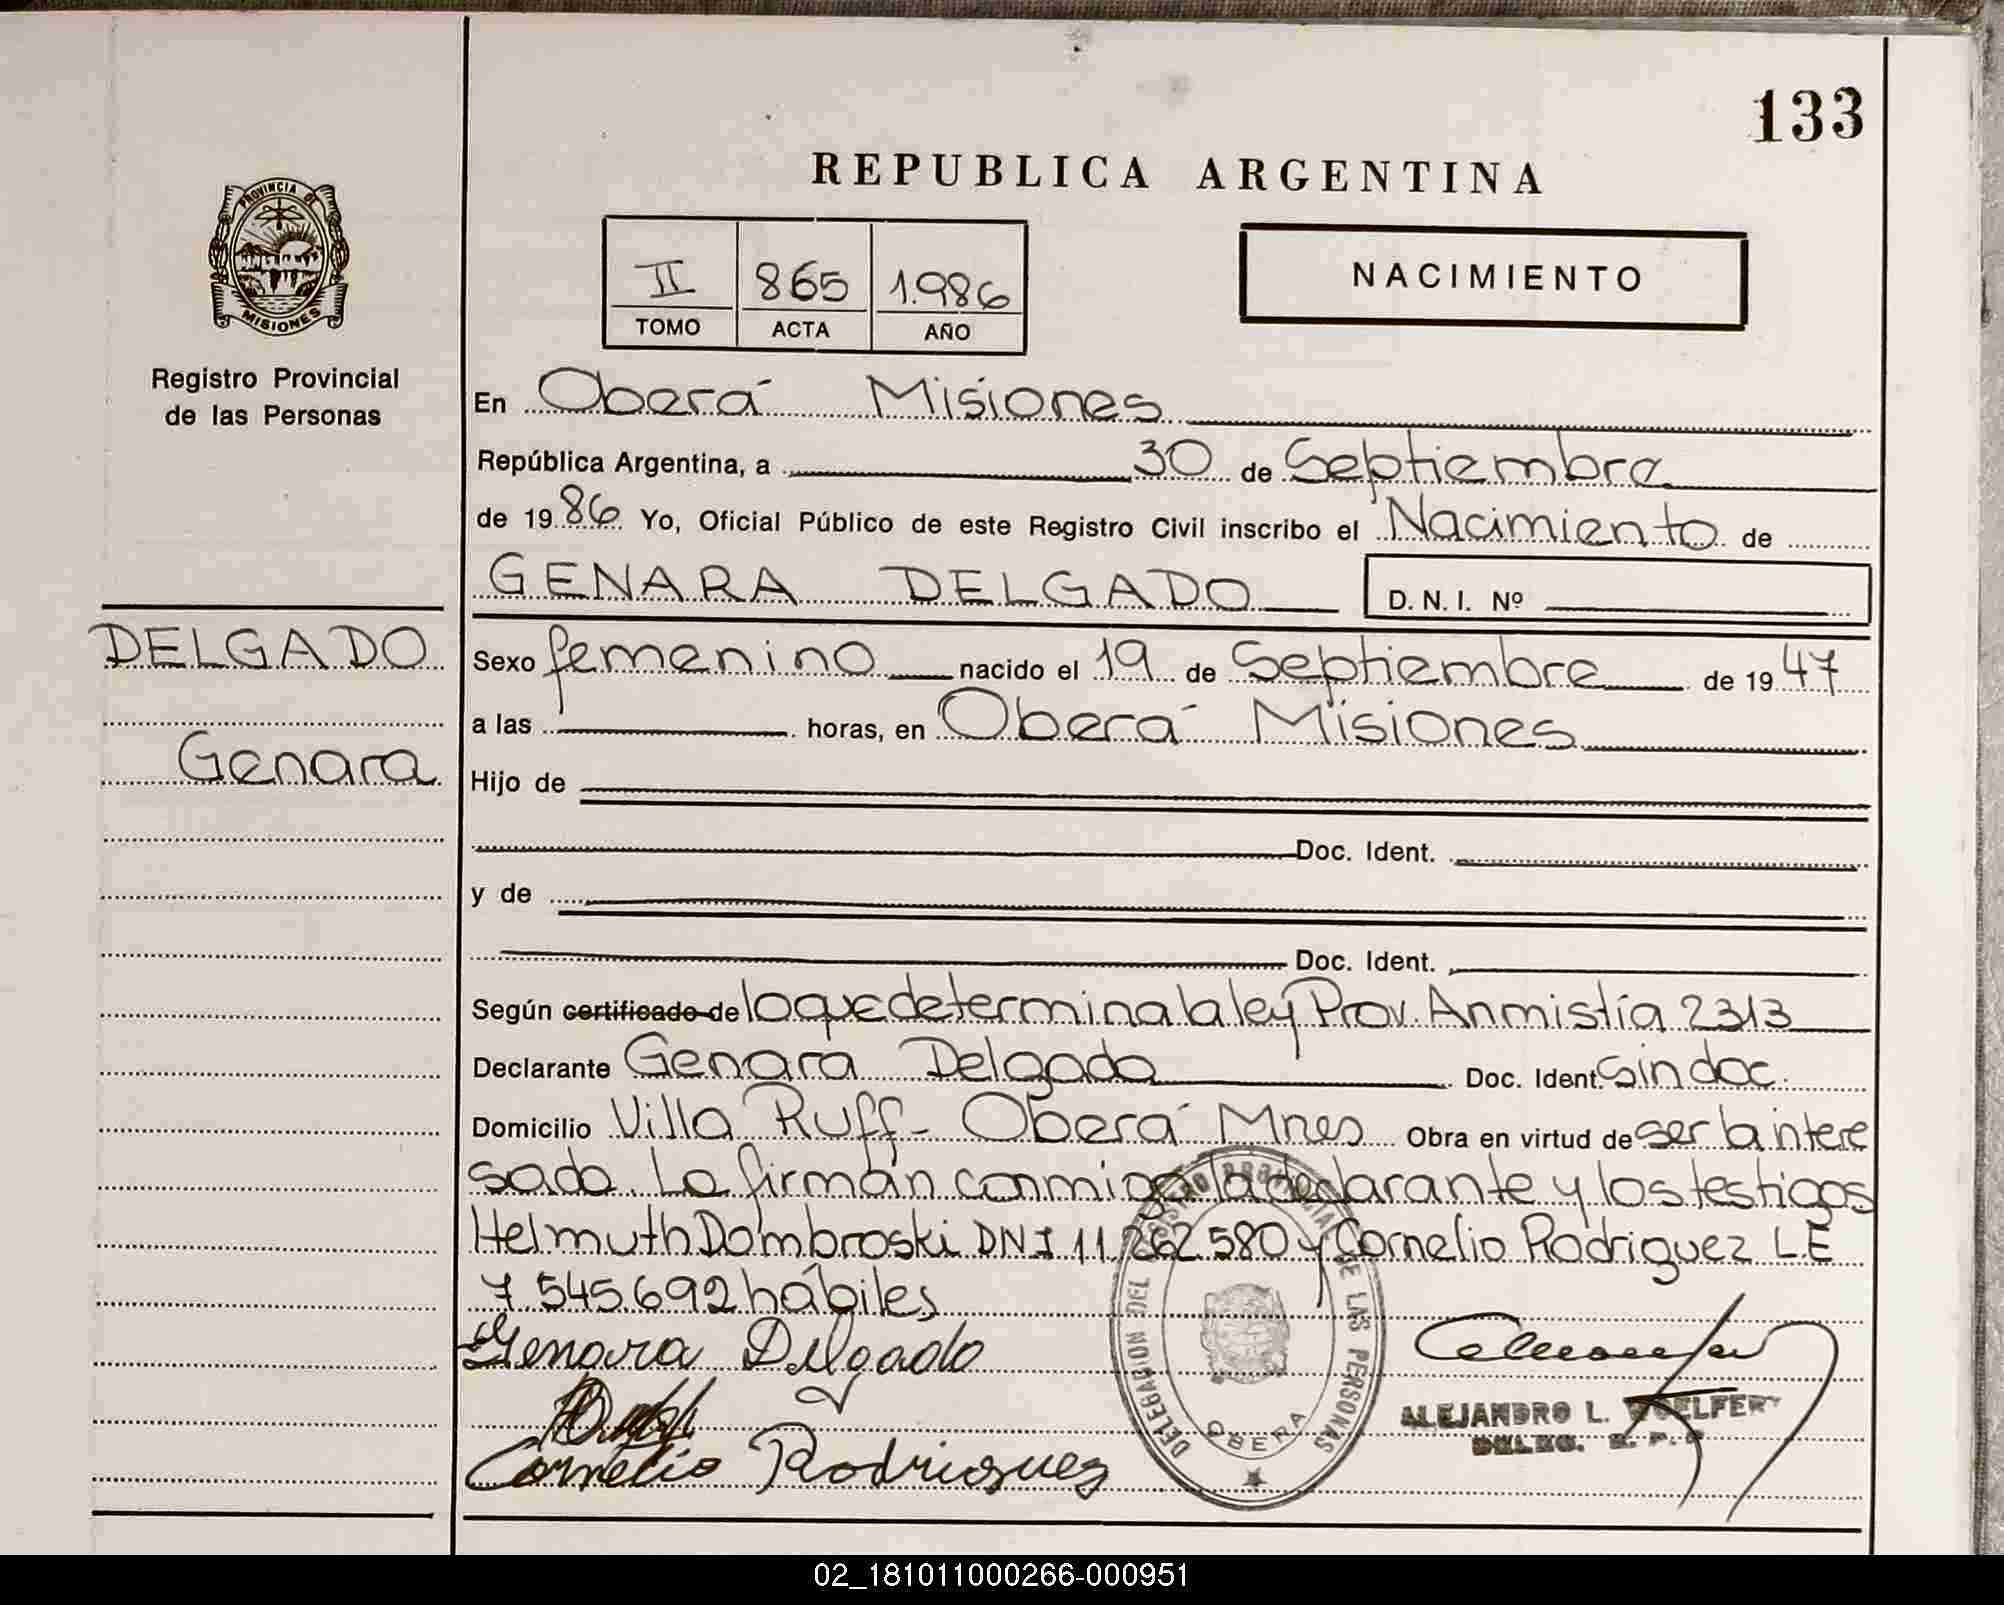 133
REPUBLICA ARGENTINA
PROVINCIA DE
MISIONES
Registro Provincial
de las Personas
II 865 1.986
TOMO ACTA AÑO
NACIMIENTO
En Oberá Misiones
República Argentina, a 30 de Septiembre
de 1986 Yo, Oficial Público de este Registro Civil inscribo el Nacimiento de
GENARA DELGADO D. N. I. Nº
DELGADO
Genara
Sexo femenino nacido el 19 de Septiembre de 1947
a las horas, en Oberá Misiones
Hijo de
Doc. Ident.
y de
Doc. Ident.
Según certificado de lo que determina la ley Prov. Anmistía 2313
Declarante Genara Delgado Doc. Ident. sin doc.
Domicilio Villa Ruff - Oberá Mnes Obra en virtud de ser la intere
sada. La firmán conmigo la declarante y los testigos
Helmuth Dombroski DNI 11.262.580 y Cornelio Rodriguez L.E
7.545.692 hábiles
Genara Delgado
Cornelio Rodriguez
DELEGACION DEL REGISTRO PROVINCIAL DE LAS PERSONAS
OBERA
ALEJANDRO L. WOELFERT
DELEG. R. P. P
02_181011000266-000951